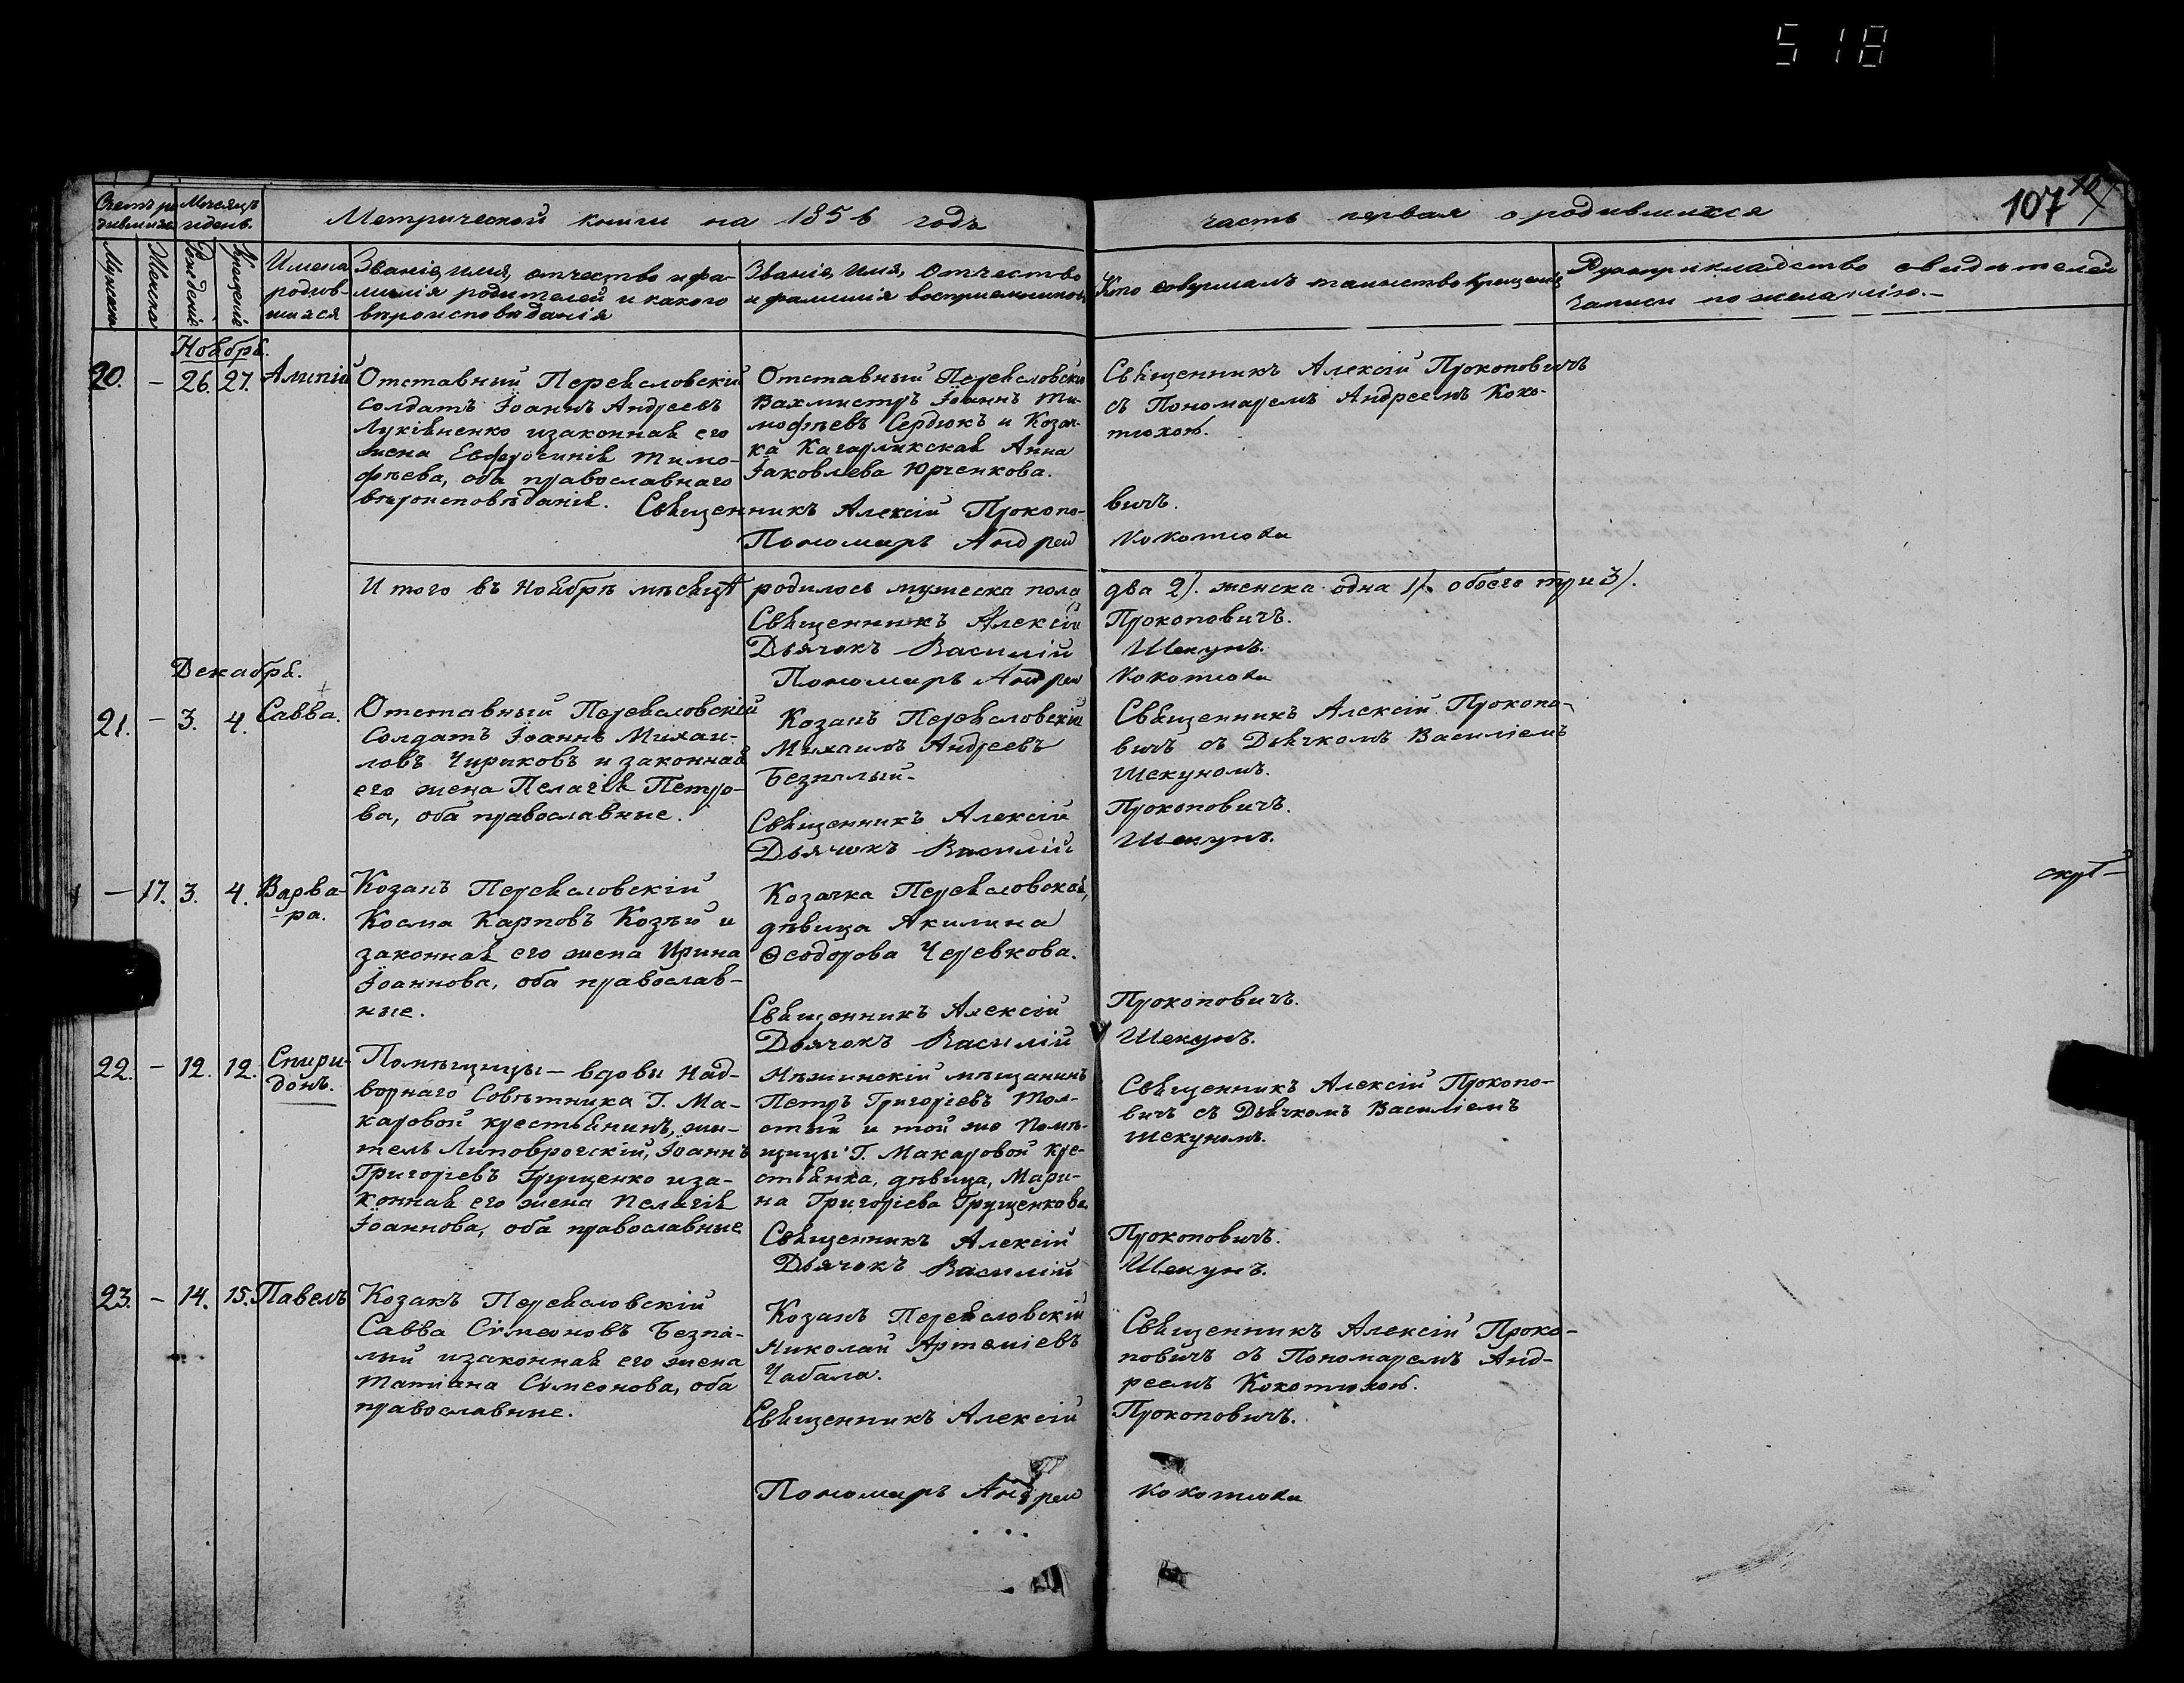 518
107
107
Счетъ ро- Мѣсяцъ
дившихся и день.
Метрической книги на 1856 годъ
часть первая о родившихся
Мужеска
Женска
Рожденіе
Крещеніе
Имена
родив-
шихся
Званіе, имя, отчество и фа-
милія родителей и какого
вѣроисповѣданія
Званіе, имя, отчество
и фамилія воспріемниковъ
Кто совершалъ таинство крещенія
Рукоприкладство свидѣтелей
записи по желанію.-
Ноября.
20. - 26. 27. Алипій
Отставный Переясловскій
солдатъ Іоаннъ Андреевъ
Лукіяненко и законная его
жена Евфросинія Тимо-
фѣева, оба православнаго
вѣроисповѣданія.
Отставный Переясловскій
Вахмистръ Іоаннъ Ти-
мофѣевъ Сердюкъ и Козач-
ка Кагарликская Анна
Іаковлева Юрченкова.
Священникъ Алексій Прокоповичъ
съ Пономаремъ Андреемъ Коко-
тюхою.
Священникъ Алексій Прокопо-
вичъ.
Пономарь Андрей Кокотюха
Итого въ Ноябрѣ мѣсяцѣ родилось мужеска пола два 2). женска одна 1). обоего три 3).
Священникъ Алексій Прокоповичъ.
Дьячокъ Василій Шекунъ.
Пономарь Андрей Кокотюха
Декабря.
21. - 3. 4. Савва.
Отставный Переясловскій
Солдатъ Іоаннъ Михаи-
ловъ Чириковъ и законная
его жена Пелагія Петро-
ва, оба православные.
Козакъ Переясловскій
Михаилъ Андреевъ
Безпалый.
Священникъ Алексій Прокопо-
вичъ съ Дьячкомъ Василіемъ
Шекуномъ.
Священникъ Алексій Прокоповичъ.
Дьячокъ Василій Шекунъ.
- 17. 3. 4. Варва-
-ра.
Козакъ Переясловскій
Косма Карповъ Козѣй и
законная его жена Ирина
Іоаннова, оба православ-
ные.
Козачка Переясловская,
дѣвица Акилина
Ѳеодорова Черевкова.
Священникъ Алексій Прокоповичъ.
Дьячокъ Василій Шекунъ.
22. - 12. 12. Спири-
донъ.
Помѣщицы - вдовы Над-
ворнаго Совѣтника Г. Ма-
каровой крестьянинъ, жи-
тель Липоврогскій, Іоаннъ
Григоріевъ Грущенко и за-
конная его жена Пелагія
Іоаннова, оба православные
Нѣжинскій мѣщанинъ
Петръ Григоріевъ Тол-
стый и той же Помѣ-
щицы Г. Макаровой кре-
стьянка, дѣвица, Мари-
на Григоріева Грущенкова.
Священникъ Алексій Прокопо-
вичъ съ Дьячкомъ Василіемъ
Шекуномъ.
Священникъ Алексій Прокоповичъ.
Дьячокъ Василій Шекунъ.
23. - 14. 15. Павелъ
Козакъ Переясловскій
Савва Сѵмеоновъ Безпа-
лый и законная его жена
Татіана Сѵмеонова, оба
православные.
Козакъ Переясловскій
Николай Артеміевъ
Чабала.
Священникъ Алексій Проко-
повичъ съ Пономаремъ Анд-
реемъ Кокотюхою.
Священникъ Алексій Прокоповичъ.
Пономарь Андрей Кокотюха